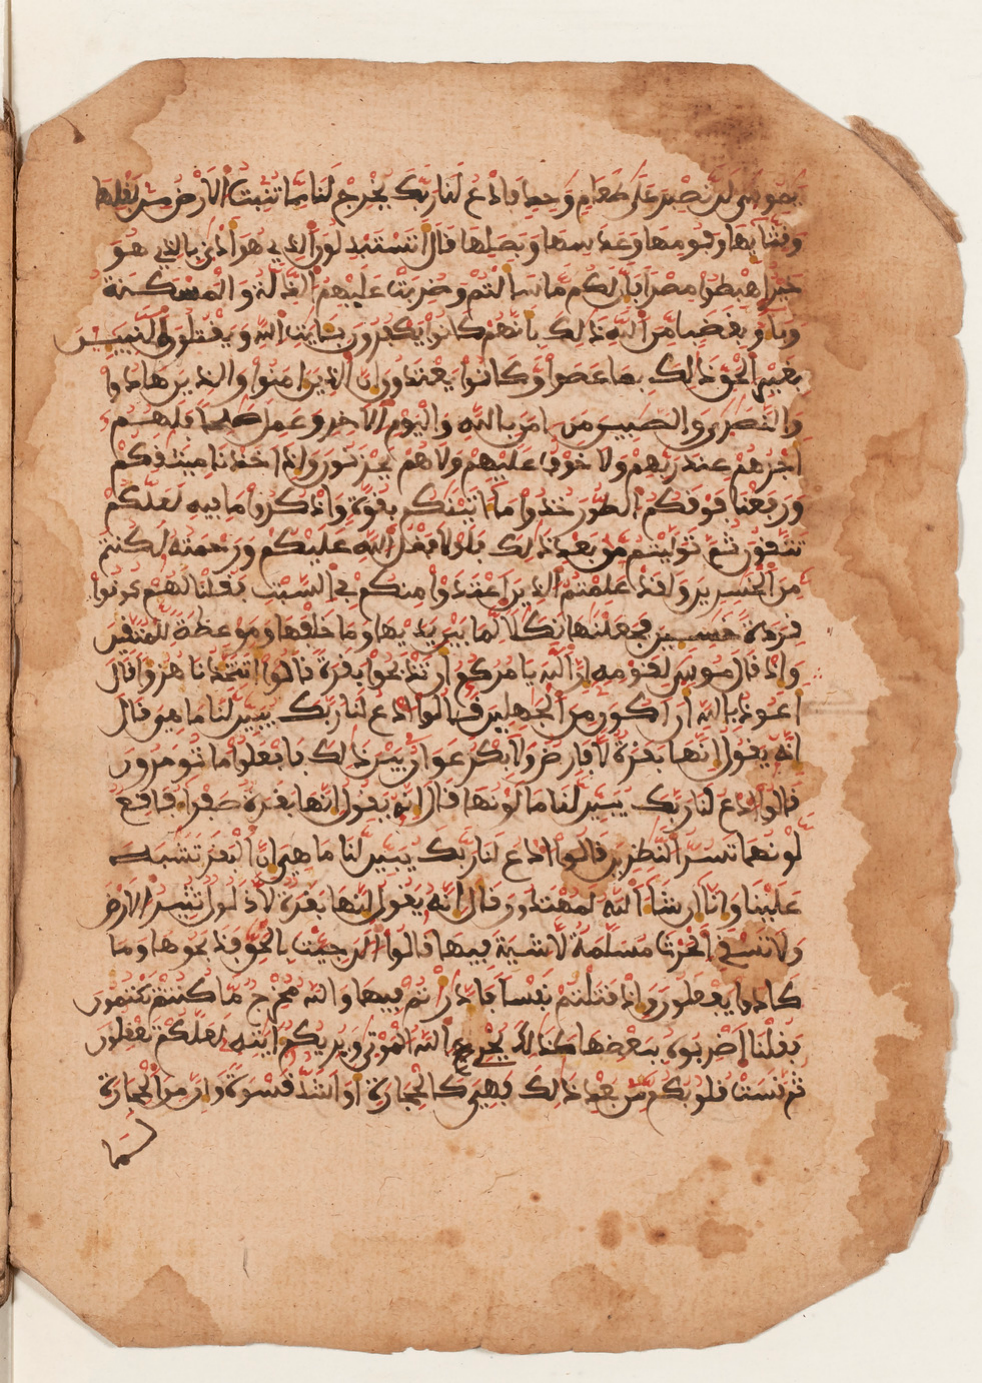 يموسى لن نصبر على طعام وحد فادع لنا ربك يخرج لنا مما تنبت الارض من بقلها
وقثايها وفومها وعدسها وبصلها قال اتستبدلون الذي هو ادنى بالذي هو
خير اهبطوا مصرا فان لكم ما سالتم وضربت عليهم الذلة والمسكنة
وباو بغضب من الله ذلك بانهم كانوا يكفرون بايت الله ويقتلون النبيين
بغير الحق ذلك بما عصوا وكانوا يعتدون ان الذين امنوا والذين هادوا
والنصرى والصبين من امن بالله واليوم الاخر وعمل صلحا فلهم
اجرهم عند ربهم ولا خوف عليهم ولا هم يحزنون واذ اخذنا ميثقكم
ورفعنا فوقكم الطور خذوا ما اتينكم بقوة واذكروا ما فيه لعلكم
تتقون ثم توليتم من بعد ذلك فلولا فضل الله عليكم ورحمته لكنتم
من الخسرين ولقد علمتم الذين اعتدوا منكم في السبت فقلنا لهم كونوا
قردة خسين فجعلنها نكلا لما بين يديها وما خلفها وموعظة للمتقين
واذ قال موسى لقومه ان الله يامركم ان تذبحوا بقرة قالوا اتتخذنا هزوا قال
اعوذ بالله ان اكون من الجهلين قالوا ادع لنا ربك يبين لنا ما هي قال
انه يقول انها بقرة لا فارض ولا بكر عوان بين ذلك فافعلوا ما تومرون
قالوا ادع لنا ربك يبين لنا ما لونها قال انه يقول انها بقرة صفرا فاقع
لونها تسر النظرين قالوا ادع لنا ربك يبين لنا ما هي ان البقر تشبه
علينا وانا ان شا الله لمهتدون قال انه يقول انها بقرة لا ذلول تثير الارض
ولا تسقي الحرث مسلمة لا شية فيها قالوا الن جيت بالحق فذبحوها وما
كادوا يفعلون واذ قتلتم نفسا فادرتم فيها والله مخرج ما كنتم تكتمون
فقلنا اضربوه ببعضها كذلك يحي الله الموتى ويريكم ايته لعلكم تعقلون
ثم قست قلوبكم من بعد ذلك فهي كالحجارة او اشد قسوة وان من الحجارة
لما